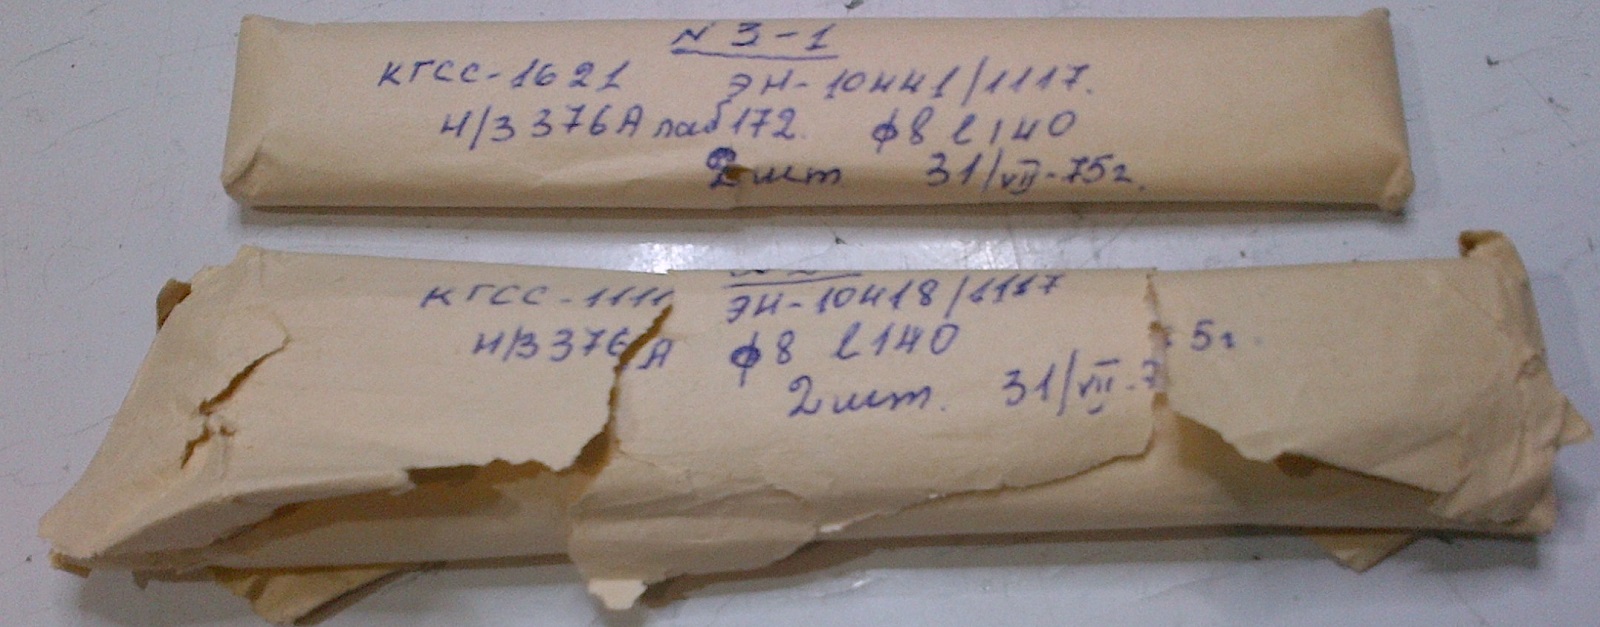 N 3-1
КГСС-1621 ЭН-10441/1117.
Н/З 376А лаб 172. ф8 l 140
2 шт 31/VII-75г.
КГСС-1111 ЭН-10418/1117
Н/З 376А ф8 l 140
2 шт. 31/VII-75г.